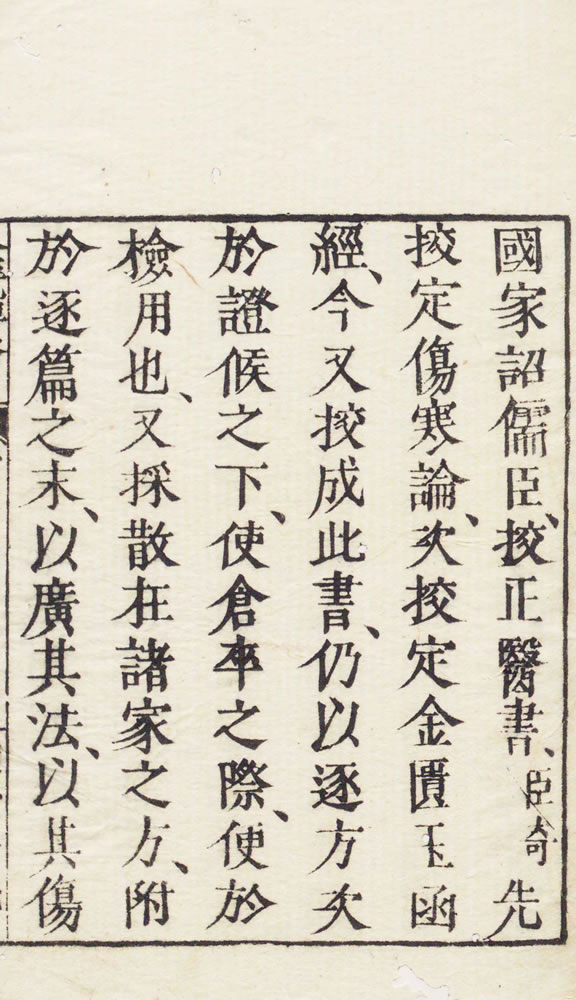 國家詔儒臣、挍正醫書、臣奇先
挍定傷寒論、次挍定金匱玉函
經、今又挍成此書、仍以逐方次
於證候之下、使倉卒之際、便於
檢用也、又採散在諸家之方、附
於逐篇之末、以廣其法、以其傷